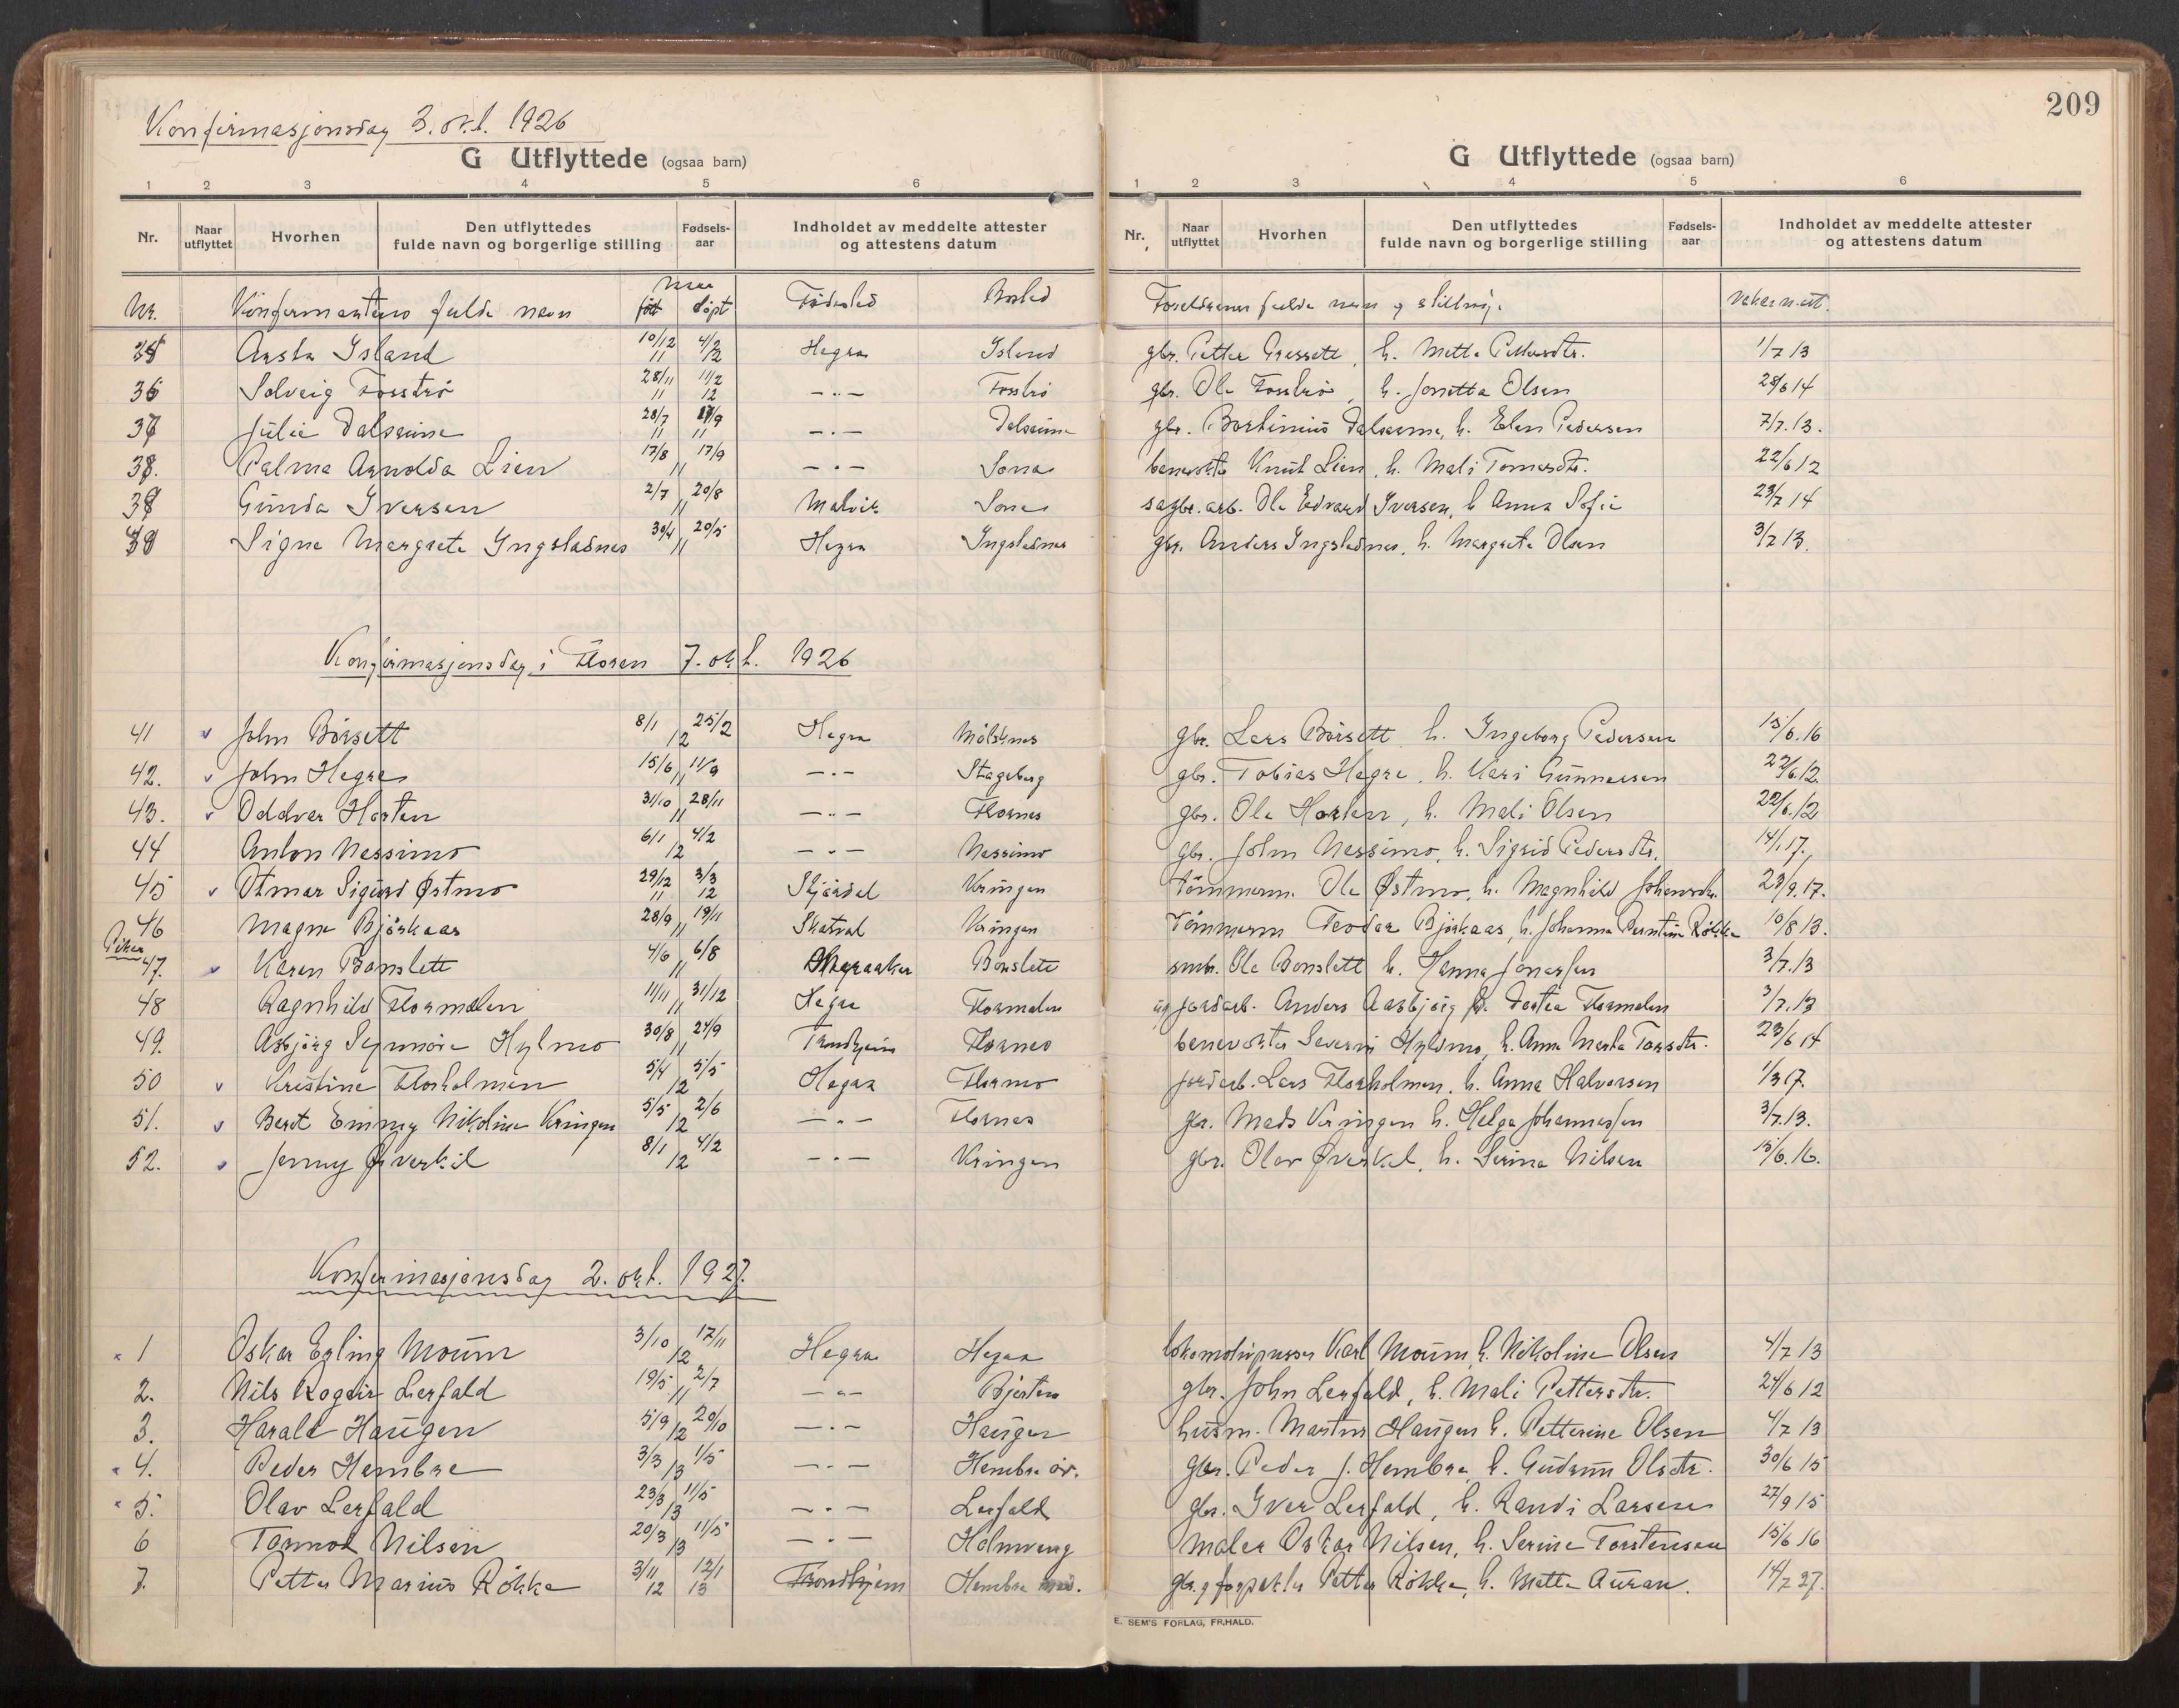 Konfirmasjonsdag 3. okt. 1926
G Utflyttede (ogsaa barn)
1 2 3 4 5 6
Nr. Naar utflyttet Hvorhen Den utflyttedes fulde navn og borgerlige stilling Fødsels-aar Indholdet av meddelte attester og attestens datum
Nr. Konfirmantens fulde navn Naar født døpt Fødested Bosted
35 Aasta Island 10/12 11 4/2 12 Hegra Island
36 Solveig Fosstrø 28/11 11 11/2 12 —„— Fosstrø
37 Julie Dalsaune 28/7 11 17/9 11 —„— Dalsaune
38. Palma Arnolda Lien 17/8 17/9 11 —„— Sona
39 Gunda Iversen 2/7 20/8 11 Malvik Sona
40 Signe Margrete Ingstadnes 30/4 20/5 11 Hegra Ingstadnes
Konfirmasjonsdag i Floren 7. okt. 1926
41 v John Børsett 8/1 25/2 12 Hegra Mølsknes
42. v John Hegre 15/6 11/9 11 —„— Stageberg
43. v Oddvar Horten 31/10 28/11 11 —„— Flornes
44 Anton Nessimo 6/1 4/2 12 —„— Nessimo
45 v Otmar Sigurd Østmo 29/12 11 3/3 12 Skjørdal Kringen
46 Magne Bjørkaas 28/9 19/11 11 Skatval Kringen
Piker
47. v Karen Bonslett 4/6 6/8 11 Meraaker Bonslett
48 Ragnhild Flormælen 11/11 31/12 11 Hegra Flormælen
49. Asbjørg Synnøve Hylmo 30/8 24/9 11 Trondhjem Flornes
50 v Kristine Florholmen 5/4 5/5 12 Hegra Flormo
51. v Berit Emmy Nikoline Kringen 5/5 2/6 12 —„— Flornes
52. v Jenny Øverkil 8/1 4/2 12 —„— Kringen
Konfirmasjonsdag 2. okt. 1927.
1 Oskar Erling Moum 3/10 17/11 12 Hegra Hegra
2. Nils Rogeir Lerfald 19/5 2/7 11 —„— Bjerten
3. Harald Haugen 5/9 20/10 12 —„— Haugen
4. Peder Hembre 3/3 1/5 13 —„— Hembre øv.
5. Olav Lerfald 23/3 11/5 13 —„— Lerfald
6 Tormod Nilsen 20/3 11/5 13 —„— Holmveng
7. Petter Marius Røkke 3/11 12 12/1 13 Trondhjem Hembre
209
G Utflyttede (ogsaa barn)
1 2 3 4 5 6
Nr. Naar utflyttet Hvorhen Den utflyttedes fulde navn og borgerlige stilling Fødsels-aar Indholdet av meddelte attester og attestens datum
Foreldrenes fulde navn og stilling. Vaksin.att.
gbr. Petter Gressett, h. Mette Pettersdtr. 1/7 13
gbr. Ole Fosstrø, h. Jonetta Olsen 28/6 14
gbr. Bortinius Dalsaune, h. Elen Pedersen 7/7. 13.
banevokter Knut Lien, h. Mali Tomasdtr. 22/6 12
sagbr.arb. Ole Edvard Iversen, h Anna Sofie 23/7 14
gbr. Anders Ingstadnes, h. Margrete Olsen 3/7 13.
gbr. Lars Børsett, h. Ingeborg Pedersen 15/6. 16
gbr. Tobias Hegre, h. Kari Gunnarsen 22/6. 12.
gbr. Ole Horten, h. Mali Olsen 22/6. 12
gbr. John Nessimo, h. Sigrid Pedersdtr. 14/1 17.
Tømmerm. Ole Østmo, h. Magnhild Johansdtr. 23/9. 17.
Tømmerm Teodor Bjørkaas, h. Johanna Berntine Røkke 10/8 13.
smbr. Ole Bonslett h. Hanna Jonassen 3/7. 13
ug jordarb. Anders Aasbjørg p. Dortea Flormælen 3/7. 13
banevokter Severin Hylmo, h. Anna Marta Torsdtr. 23/6 14
jordarb. Lars Florholmen, h. Anna Halvorsen 1/3 17.
gbr. Mads Kringen h. Helga Johannessen 3/7. 13.
gbr. Olav Øverkil, h. Serina Nilsen 15/6. 16.
lokomotivpusser Karl Moum, h. Nikoline Olsen 4/7 13
gbr. John Lerfald, h. Mali Pettersdtr. 24/6 12
husm. Martin Haugen h. Petterine Olsen 4/7 13
gbr. Peder J. Hembre, h. Gudrun Olsdtr. 30/6 15
gbr. Iver Lerfald, h. Randi Larsen 27/9 15
Maler Oskar Nilsen, h. Serine Torstensen 15/6 16
gbr. g forpakter Petter Røkke, h. Mette Auran. 14/7 27.
E. SEM'S FORLAG, FR.HALD.